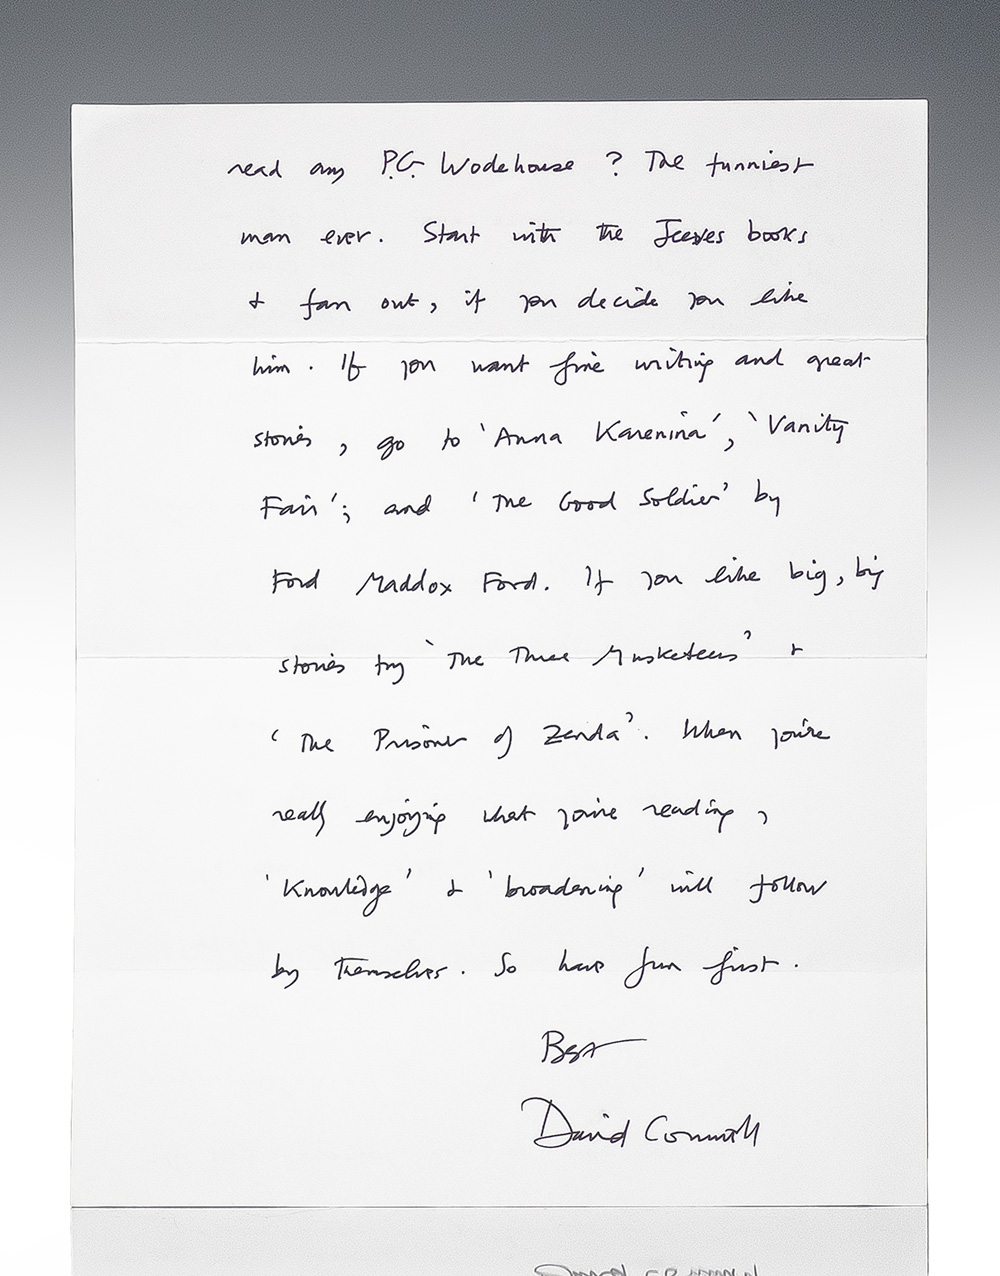 read any P.G. Wodehouse ? The funniest
man ever. Start with the Jeeves books
& fan out, if you decide you like
him. If you want fine writing and great
stories, go to 'Anna Karenina', 'Vanity
Fair'; and 'The Good Soldier' by
Ford Maddox Ford. If you like big, big
stories try 'The Three Musketeers' &
'The Prisoner of Zenda'. When you're
really enjoying what you're reading,
'Knowledge' & 'broadening' will follow
by themselves. So have fun first.
Best
David Cornwell